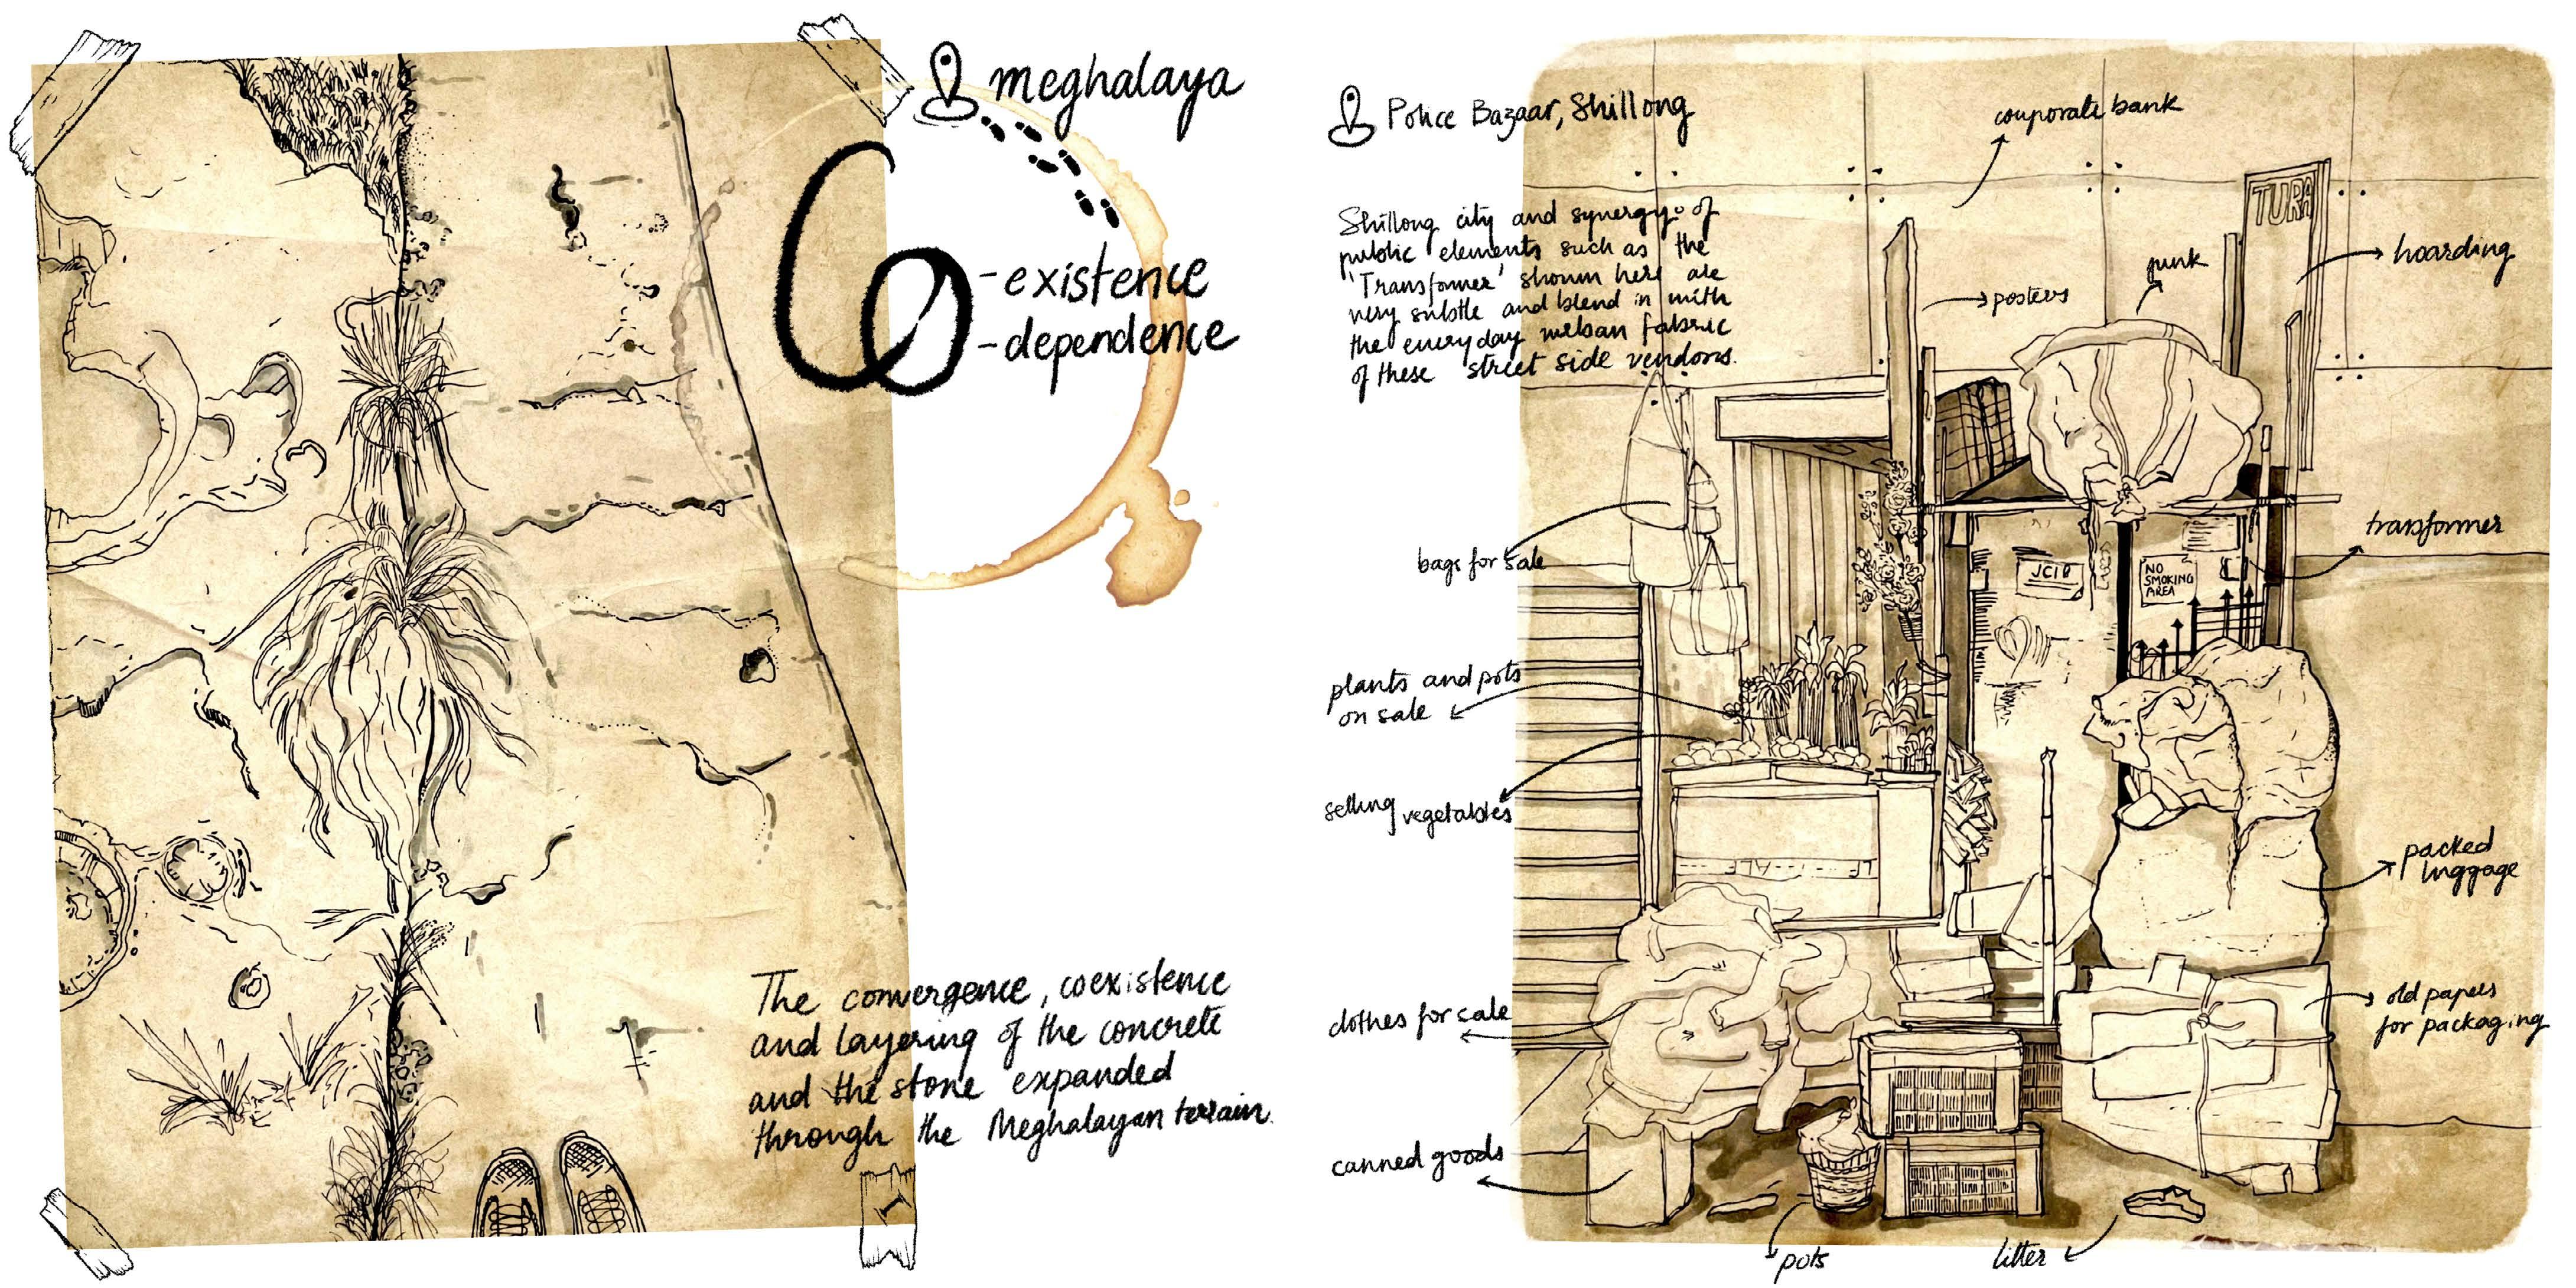 meghalaya
Co
-existence
-dependence
The convergence, coexistence
and layering of the concrete
and the stone expanded
through the Meghalayan terrain.
Police Bazaar, Shillong
Shillong city and synergy of
public elements such as the
'Transformer' shown here are
very subtle and blend in with
the everyday urban fabric
of these street side vendors.
couporate bank
TURA
hoarding
junk
posters
transformer
JCI
NO
SMOKING
AREA
bags for sale
plants and pots
on sale
selling vegetables
packed
luggage
clothes for sale
old papers
for packaging
canned goods
pots
litter